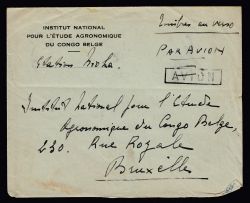 INSTITUT NATIONAL
POUR L'ÉTUDE AGRONOMIQUE
DU CONGO BELGE
Timbres au verso
PAR AVION
Station
AVION
Institut National pour l'Etude
Agronomique du Congo Belge,
230. Rue Royale
Bruxelles